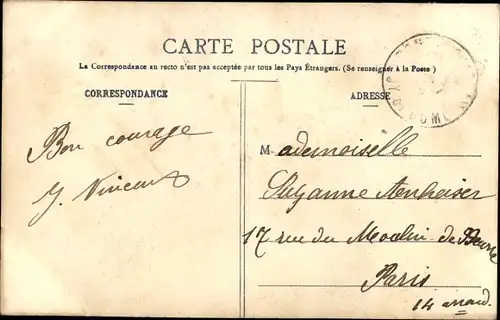 CARTE POSTALE
La Correspondance au recto n'est pas acceptée par tous les Pays Étrangers. (Se renseigner à la Poste)
CORRESPONDANCE
ADRESSE
Bon courage
J. Vincent
Mademoiselle
Suzanne
17 rue du Moulin de Beurre
Paris
14